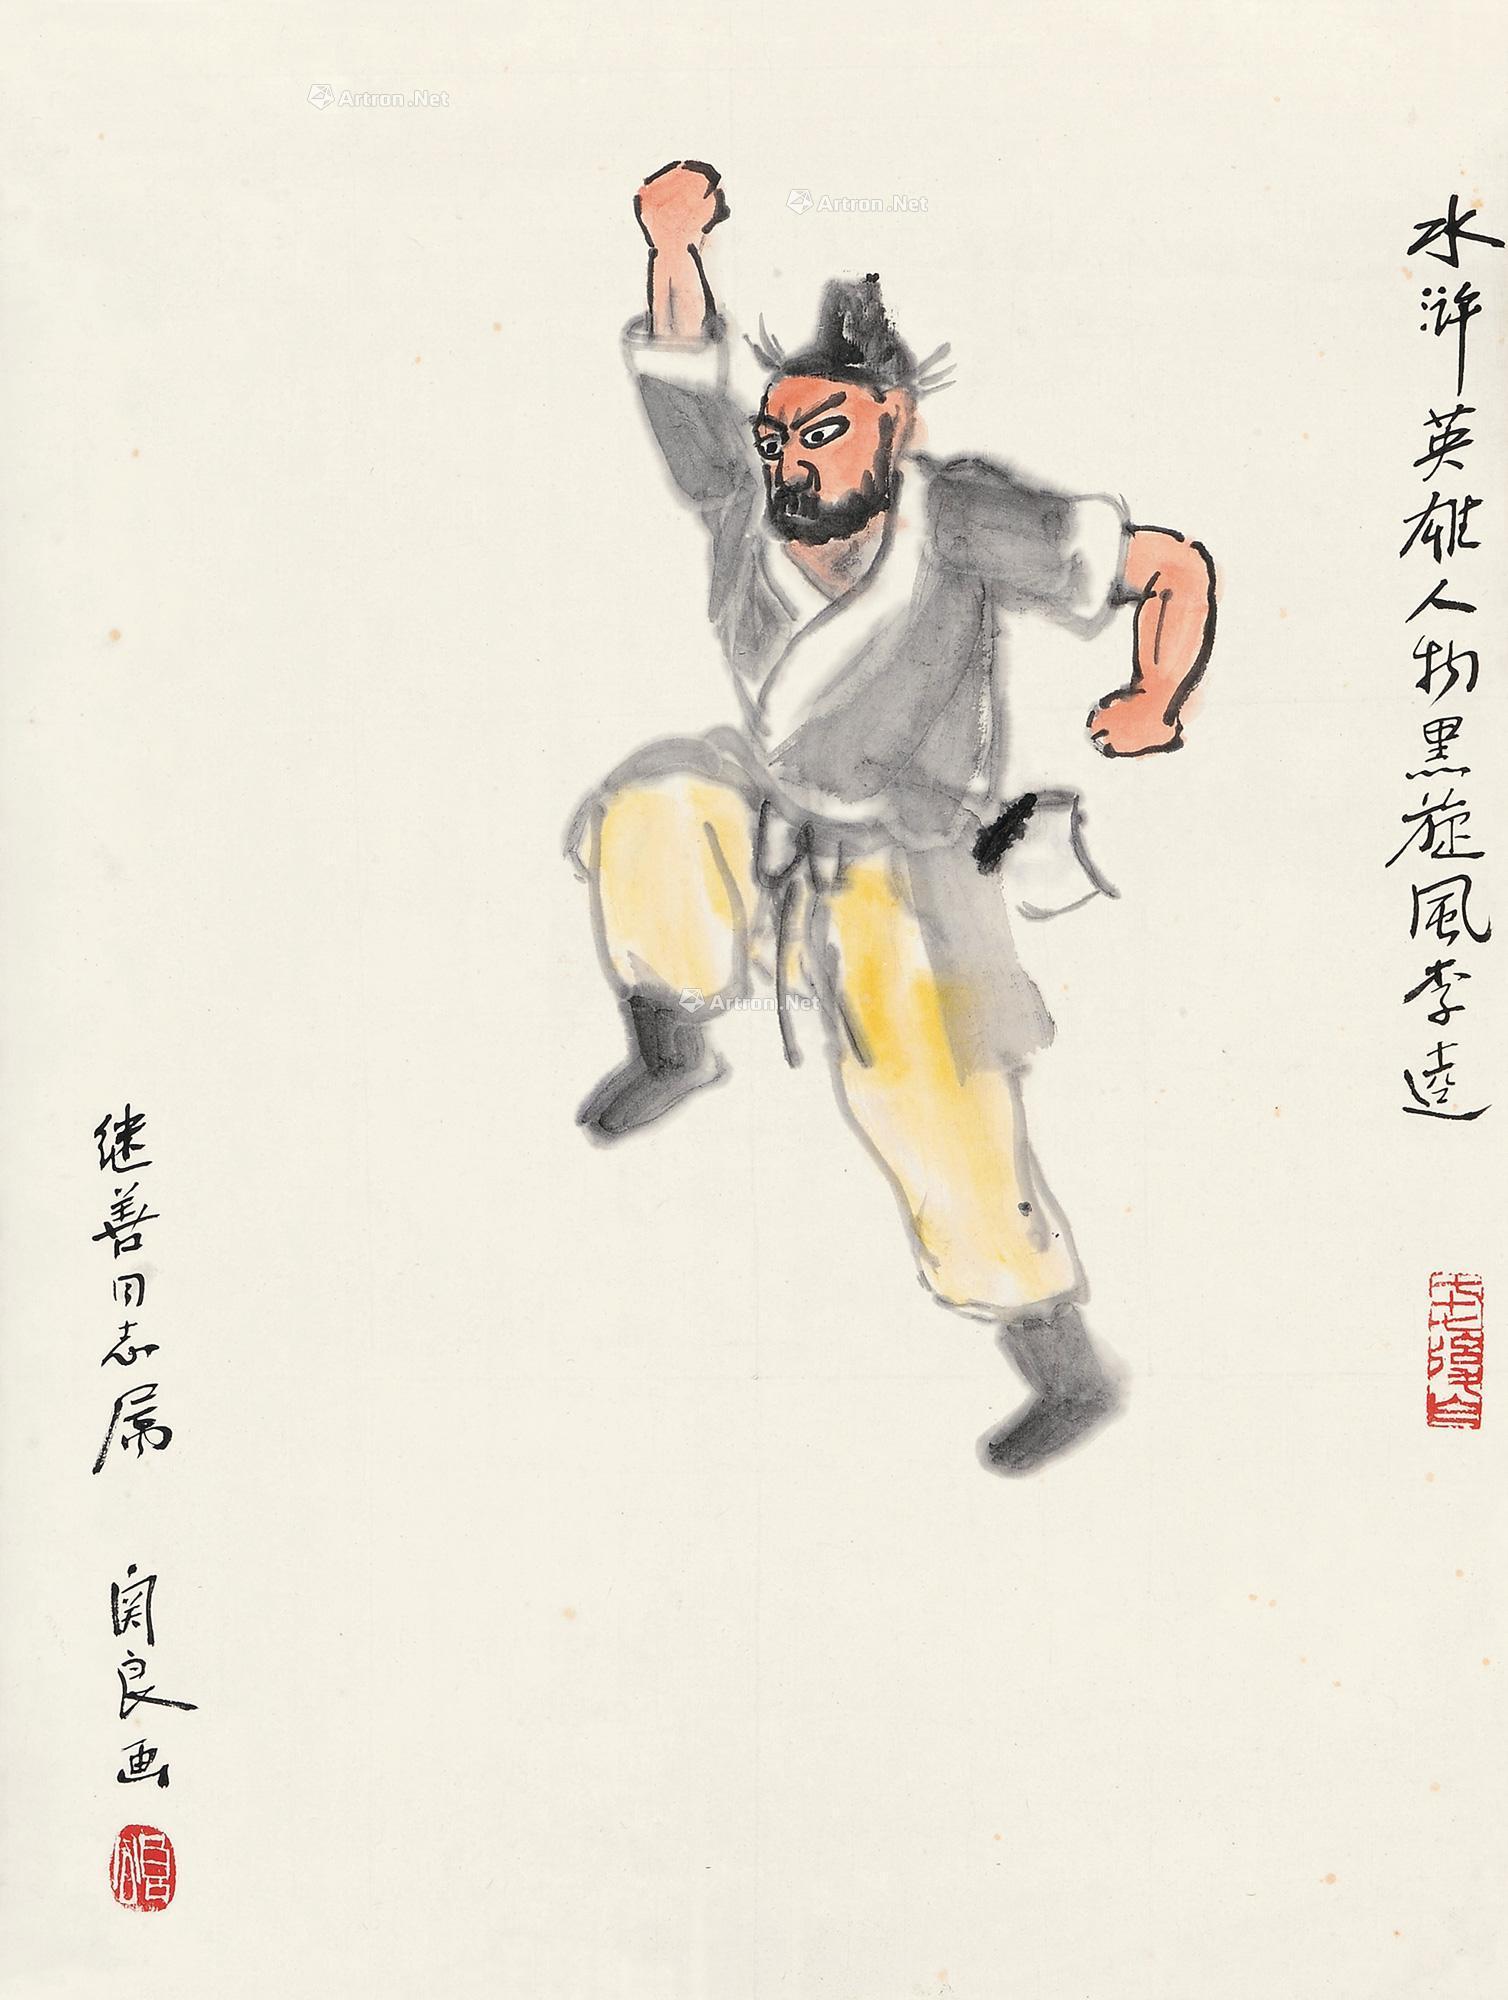 水浒英雄人物黑旋风李逵
继善同志属
关良画
Artron.Net
Artron.Net
Artron.Net